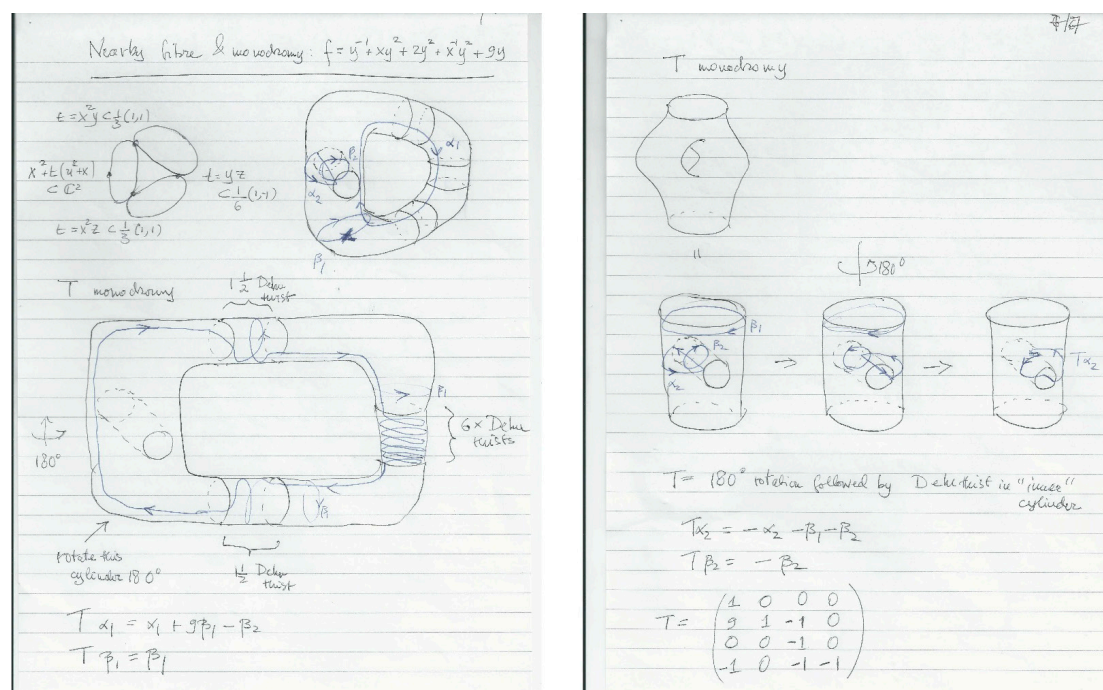 Nearby fibre & monodromy: f = y⁻¹ + xy² + 2y² + x⁻¹y² + 9y
t = x²y ⊂ ⅓(1,1)
x² + t(u²+x)
⊂ ℂ²
t = yz
⊂ ⅙(1,-1)
t = x²z ⊂ ⅓(1,1)
α₁
β₂
α₂
β₁
T monodromy
1½ Dehn
twist
β₁
6 × Dehn
twists
180°
β₁
rotate this
cylinder 180°
1½ Dehn
twist
T α₁ = α₁ + 9β₁ - β₂
T β₁ = β₁
T monodromy
=
180°
β₁
β₂
α₂
→
→
Tα₂
T = 180° rotation followed by Dehn twist in "inner"
cylinder
Tα₂ = - α₂ - β₁ - β₂
T β₂ = - β₂
T = ( 1 0 0 0
9 1 -1 0
0 0 -1 0
-1 0 -1 -1 )